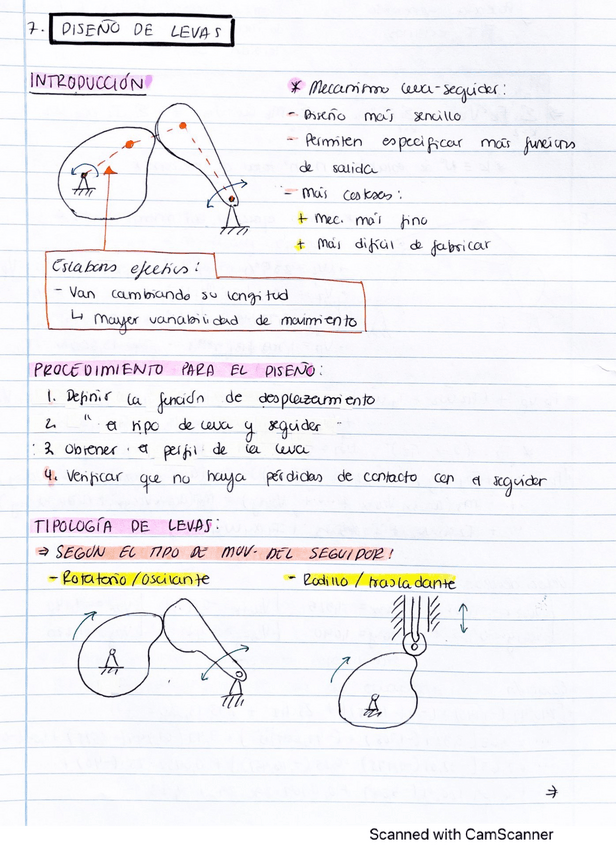 7. DISEÑO DE LEVAS
INTRODUCCIÓN
* Mecanismo leva-seguidor:
- Diseño más sencillo
- Permiten especificar más funciones
de salida
- Más costosos:
+ Mec. más fino
+ Más difícil de fabricar
Eslabons efectivs:
- Van cambiando su longitud
↳ Mayor variabilidad de movimiento
PROCEDIMIENTO PARA EL DISEÑO:
1. Definir la función de desplazamiento
2. " el tipo de leva y seguidor
3. Obtener el perfil de la leva
4. Verificar que no haya pérdidas de contacto con el seguidor
TIPOLOGÍA DE LEVAS:
⇒ SEGÚN EL TIPO DE MOV. DEL SEGUIDOR!
- Rotatorio/oscilante
- Rodillo/trasladante
Scanned with CamScanner